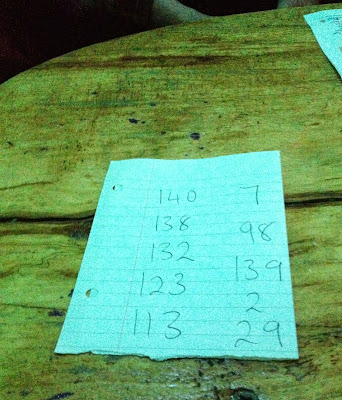 140 7
138 98
132 139
123 2
113 29